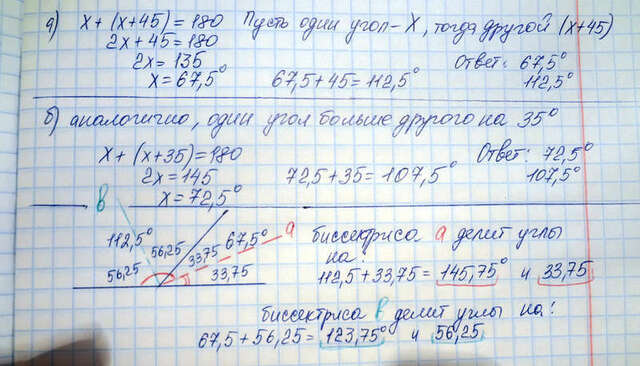 а) x + (x+45) = 180 Пусть один угол - x, тогда другой (x+45)
2x + 45 = 180
2x = 135 Ответ: 67,5°
x = 67,5° 67,5 + 45 = 112,5° 112,5°
б) аналогично, один угол больше другого на 35°
x + (x+35) = 180 Ответ: 72,5°
2x = 145 72,5 + 35 = 107,5° 107,5°
x = 72,5°
в
112,5° 56,25 33,75 67,5° а биссектриса а делит углы
56,25 33,75 на:
112,5 + 33,75 = 145,75° и 33,75
биссектриса в делит углы на:
67,5 + 56,25 = 123,75° и 56,25